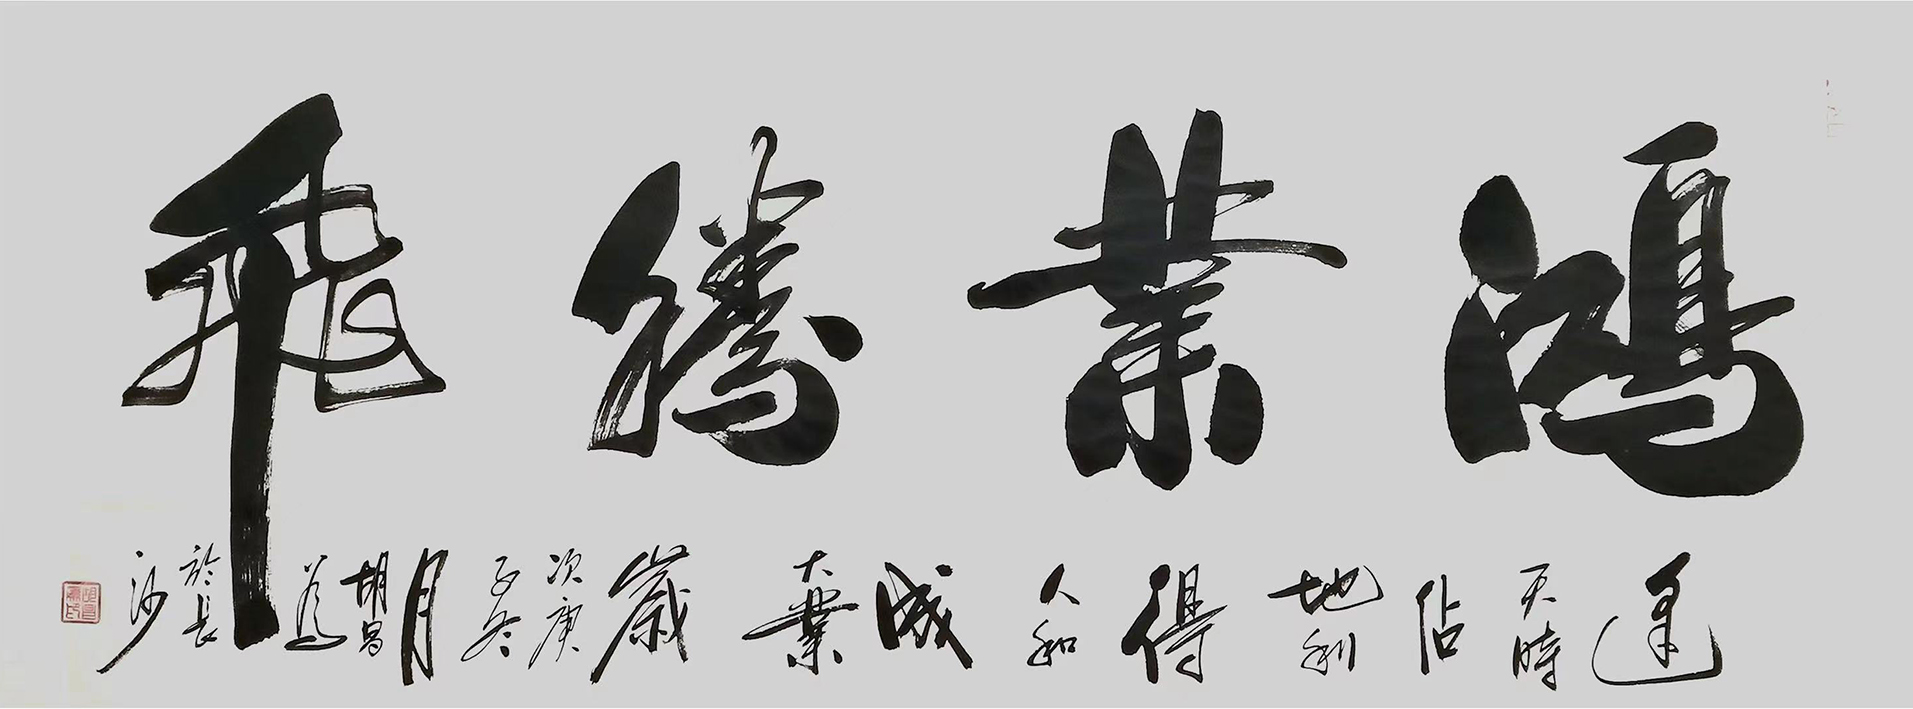 鴻業騰飛
逢天時佔地利得人和成大業歲次庚子冬月胡昌於長沙